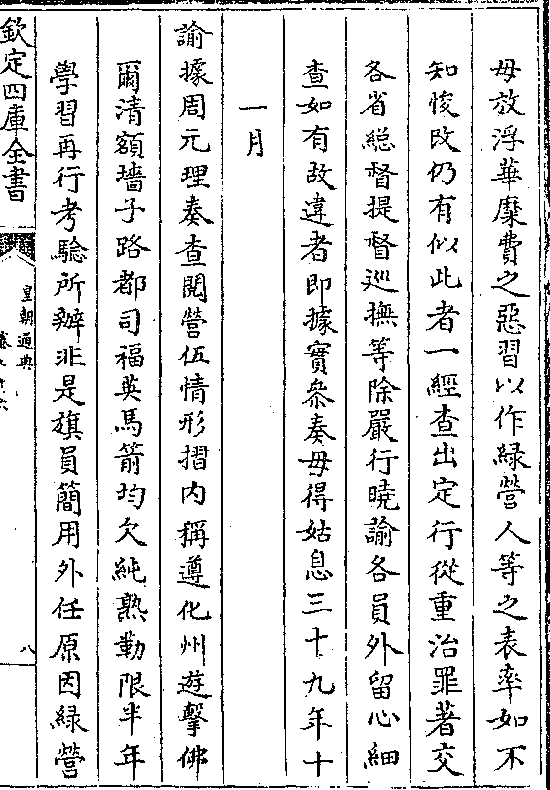 毋放浮華糜費之惡習以作緑營人等之表率如不
知悛改仍有似此者一經查出定行從重治罪著交
各省総督提督巡撫等除嚴行曉諭各員外留心細
查如有故違者即據實叅奏毋得姑息三十九年十
一月
諭據周元理奏查閲營伍情形摺内稱遵化州遊擊佛
爾清額墻子路都司福英馬箭均欠純熟勒限半年
學習再行考驗所辦非是旗員簡用外任原因緑營
欽定四庫全書
皇朝通典
八